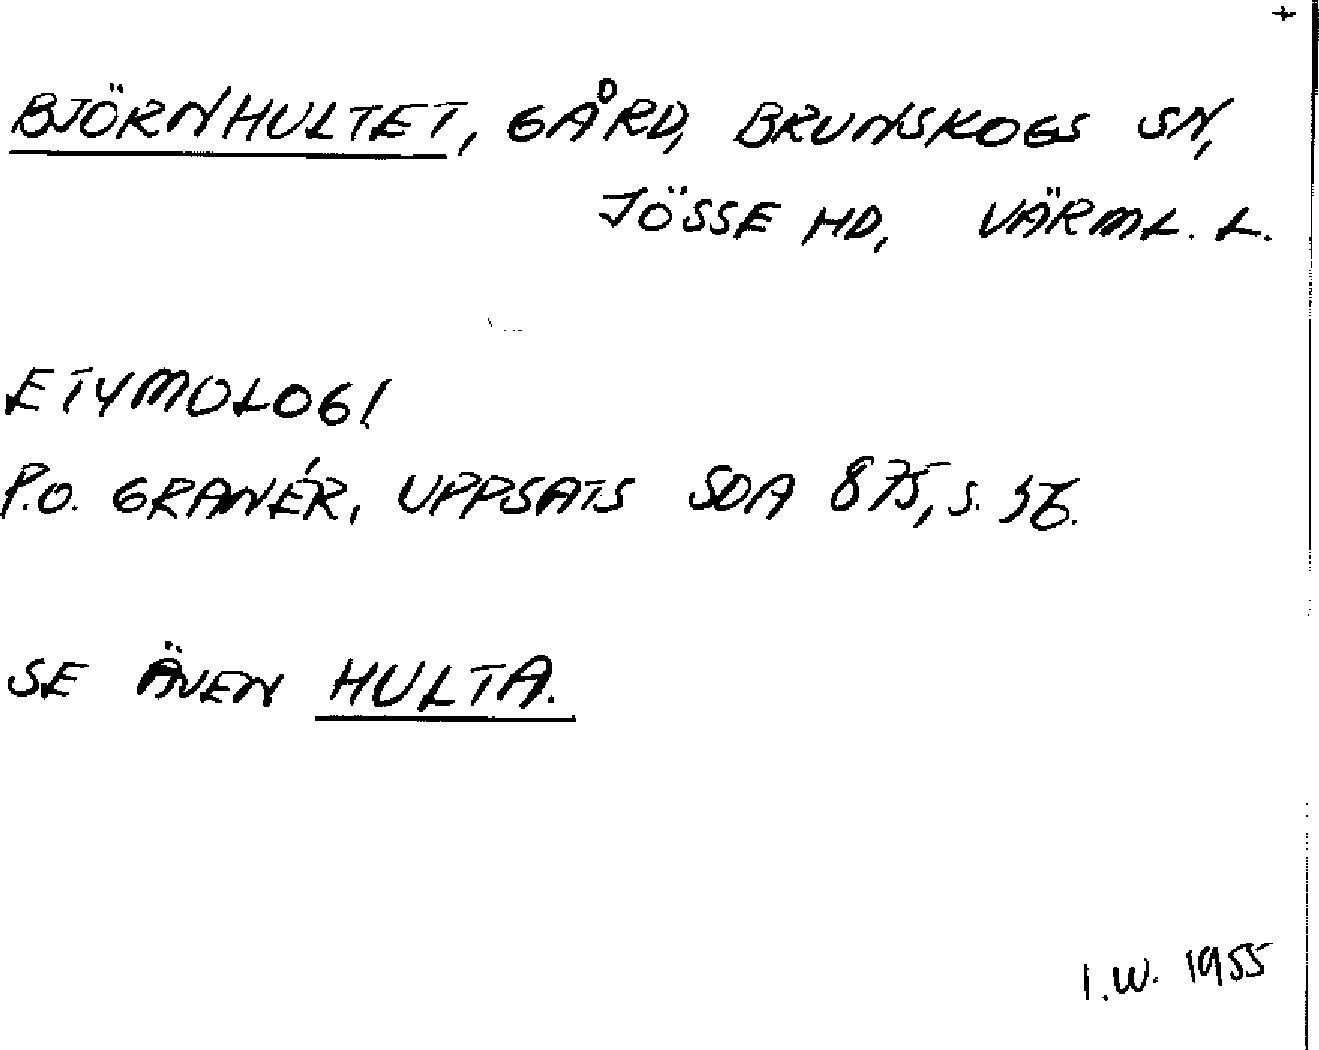 +
BJÖRNHULTET, GÅRD, BRUNSKOGS SN,
JÖSSE HD, VÄRML. L.
ETYMOLOGI
P.O. GRANÉR, UPPSATS SOA 875, S. 56.
SE ÄVEN HULTA.
I.W. 1955